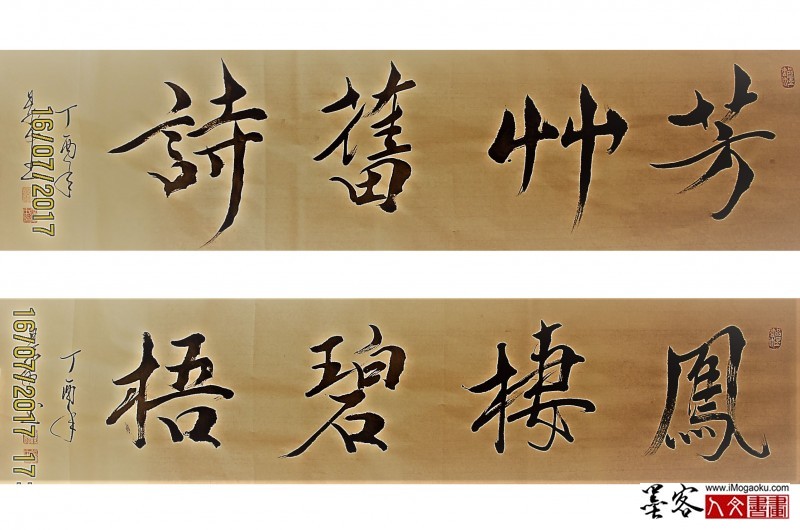 芳艸舊詩
丁酉年
16/07/2017
鳳棲碧梧
丁酉年
16/07/2017 17:
www.iMogaoku.com
墨客 人文書畫